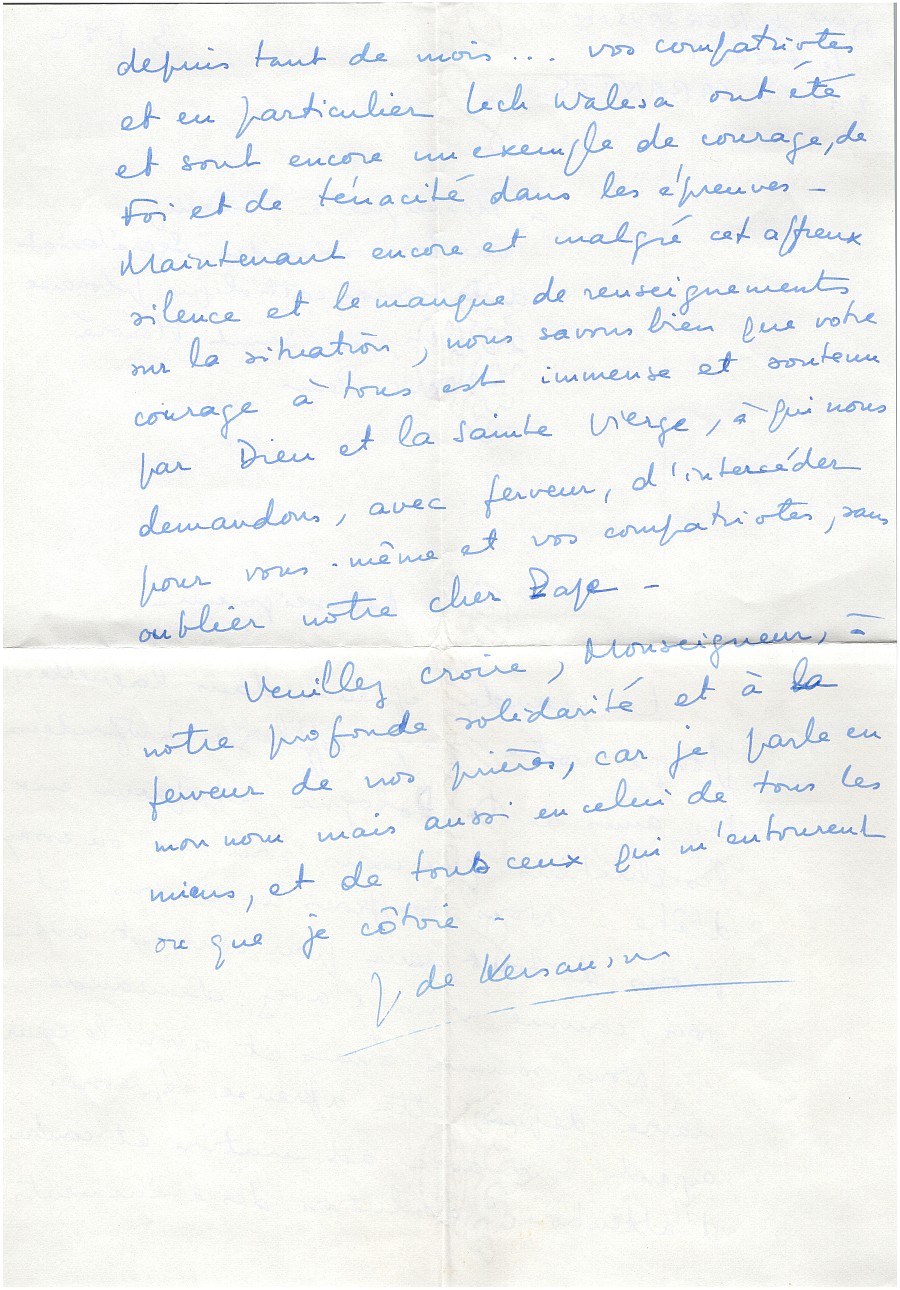 depuis tant de mois... vos compatriotes
et en particulier Lech Walesa ont été
et sont encore un exemple de courage, de
Foi et de ténacité dans les épreuves -
Maintenant encore et malgré cet affreux
silence et le manque de renseignements
sur la situation, nous savons bien que votre
courage à tous est immense et soutenu
par Dieu et la Sainte Vierge, à qui nous
demandons, avec ferveur, d'intercéder
pour vous-même et vos compatriotes, sans
oublier notre cher Pape -
Veuillez croire, Monseigneur, à
notre profonde solidarité et à la
ferveur de nos prières, car je parle en
mon nom mais aussi en celui de tous les
miens, et de tous ceux qui m'entourent
ou que je côtoie -
de